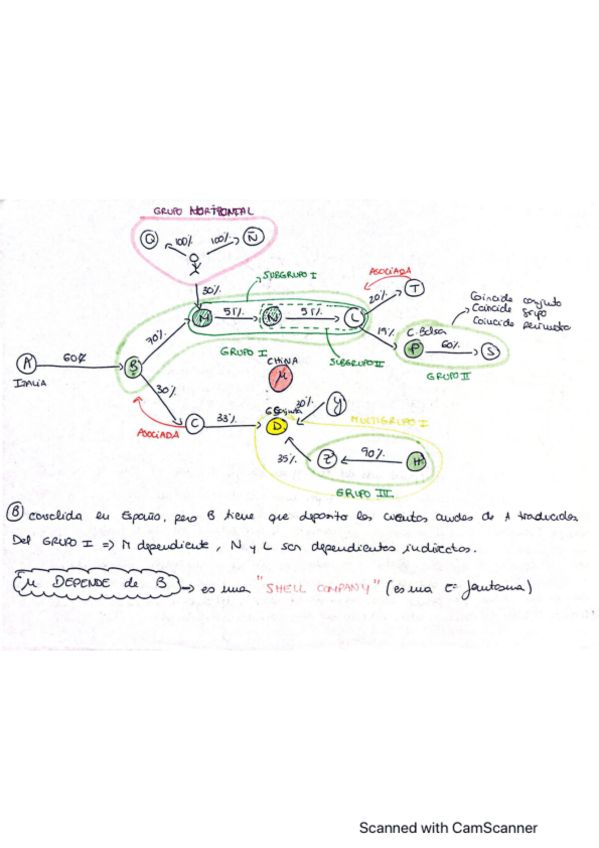 GRUPO HORIZONTAL
Q 100% 100% Ñ
30%
SUBGRUPO I
ASOCIADA
M 51% N 51% L
20% T
Coincide conjunto
Coincide grupo
Coincide perímetro
70%
19%
C. Bolsa
P 60% S
GRUPO I
SUBGRUPO II
GRUPO II
A 60% B
ITALIA
CHINA
μ
30%
ASOCIADA
C 33% D
G Conjunta
30% Y
MULTIGRUPO I
35% Z 90% H
GRUPO III
B consolida en España, pero B tiene que depositar las cuentas anuales de A traducidas
Del GRUPO I => M dependiente, N y L son dependientes indirectas.
μ DEPENDE de B → es una "SHELL COMPANY" (es una Eª fantasma)
Scanned with CamScanner